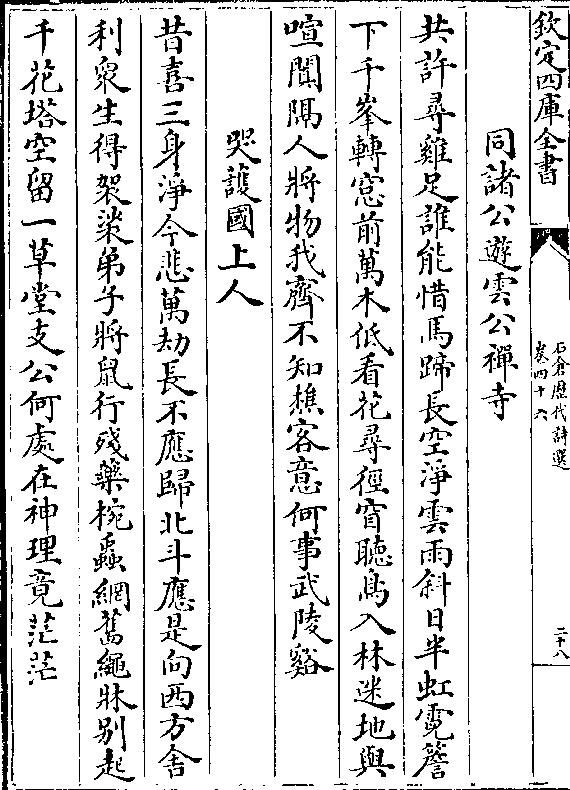 欽定四庫全書
石倉歷代詩選
卷四十六
二十八
同諸公遊雲公禪寺
共許尋雞足誰能惜馬蹄長空淨雲雨斜日半虹霓簷
下千峯轉窓前萬木低看花尋徑窅聽鳥入林迷地與
喧聞隔人將物我齊不知樵客意何事武陵谿
哭護國上人
昔喜三身淨今悲萬劫長不應歸北斗應是向西方舍
利衆生得袈裟弟子將鼠行殘藥椀蟲網舊繩牀别起
千花塔空留一草堂支公何處在神理竟茫茫